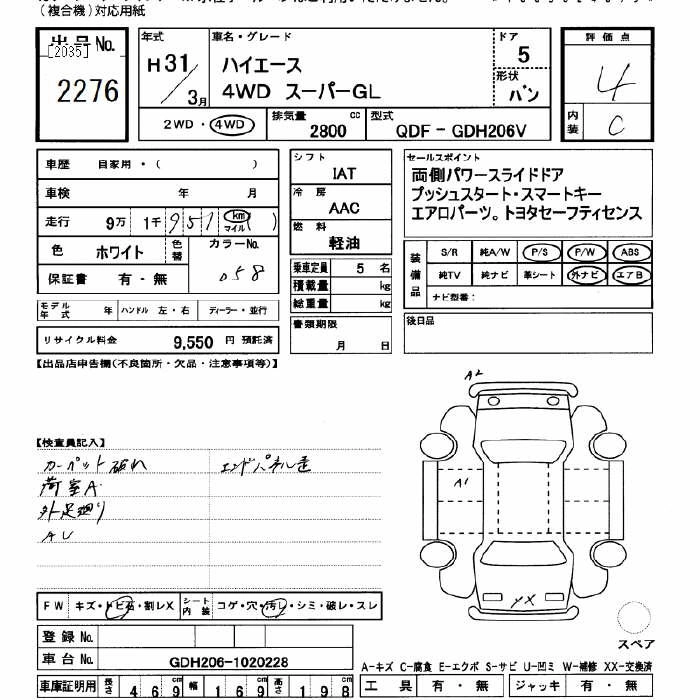 (複合機)対応用紙
出品No.
[2035]
2276
年式
H31
3月
車名・グレード
ハイエース
4WD スーパーGL
ドア
5
形状
バン
2WD・4WD
排気量 2800 cc
型式 QDF-GDH206V
評価点
4
内装
C
車歴 自家用・( )
車検 年 月
走行 9万 1千 957 km マイル ( )
色 ホワイト 色替
カラーNo.
058
保証書 有・無
モデル年式 年 ハンドル 左・右 ディーラー・並行
リサイクル料金 9,550 円 預託済
シフト
IAT
冷房
AAC
燃料
軽油
乗車定員 5 名
積載量 kg
総重量 kg
書類期限
月 日
セールスポイント
両側パワースライドドア
プッシュスタート・スマートキー
エアロパーツ。トヨタセーフティセンス
装備品
S/R 純A/W P/S P/W ABS
純TV 純ナビ 革シート 外ナビ エアB
ナビ型番:
後日品
【出品店申告欄(不良箇所・欠品・注意事項等)】
【検査員記入】
カーペット破れ エンドパネル歪
荷室A
外足廻り
AU
A2
A1
YX
スペア
FW キズ・トビ石・割レX
シート内装 コゲ・穴・汚レ・シミ・破レ・スレ
登録No.
車台No. GDH206-1020228
車庫証明用 長さ 469cm 幅 169cm 高さ 198cm
A-キズ C-腐食 E-エクボ S-サビ U-凹ミ W-補修 XX-交換済
工具 有・無 ジャッキ 有・無